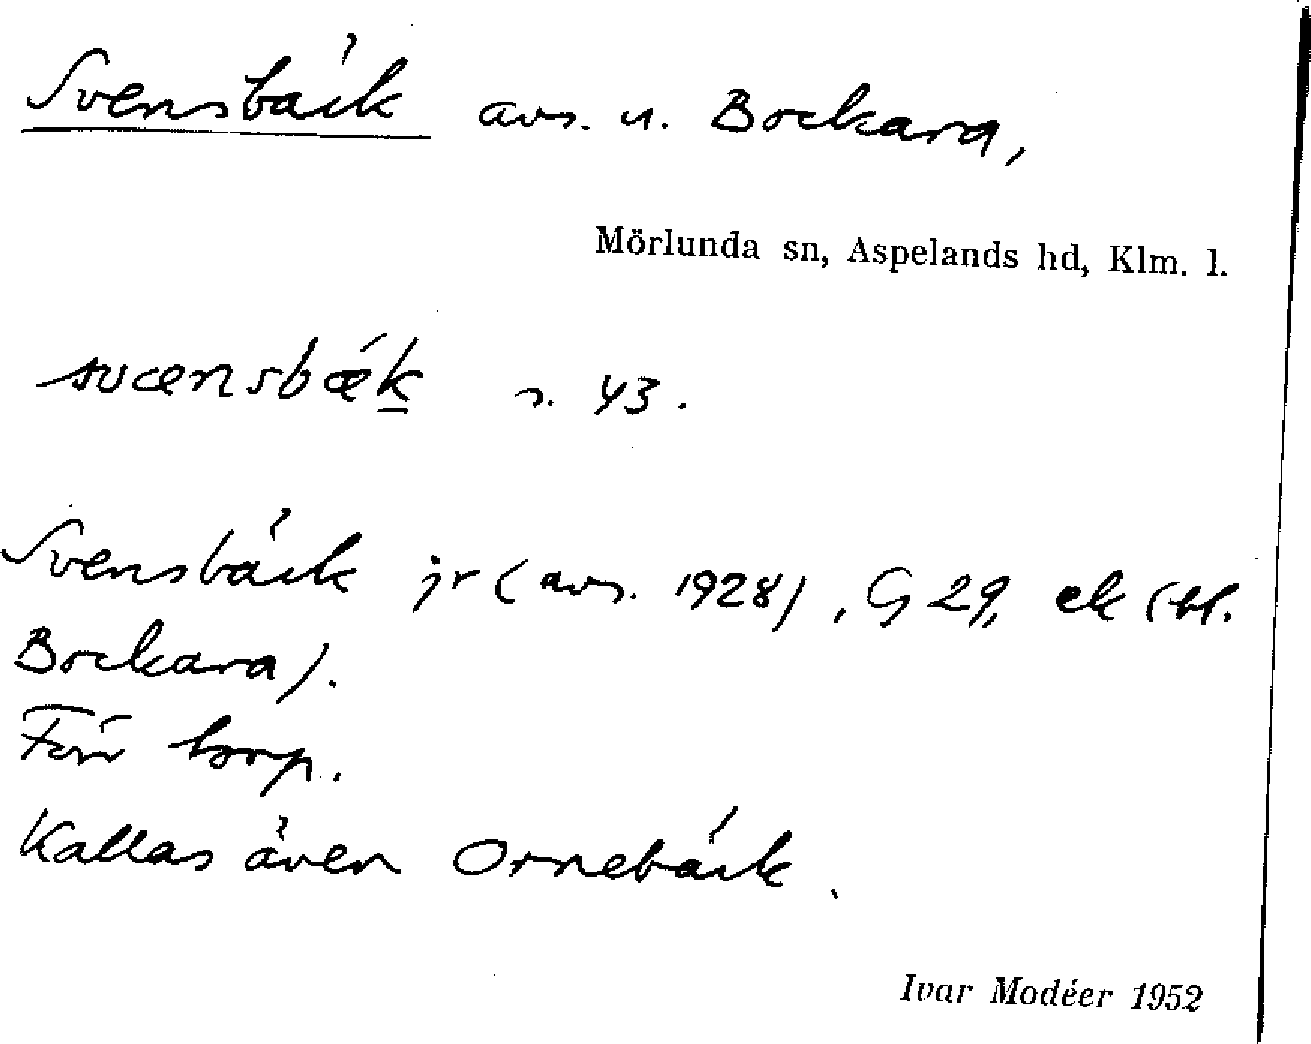 Svensbäck avs. u. Bockara,
Mörlunda sn, Aspelands hd, Klm. l.
svænsbǽk s. 43.
Svensbäck jr (avs. 1928), G 29, ek (bl.
Bockara).
Förr torp.
Kallas även Ornebäck.
Ivar Modéer 1952